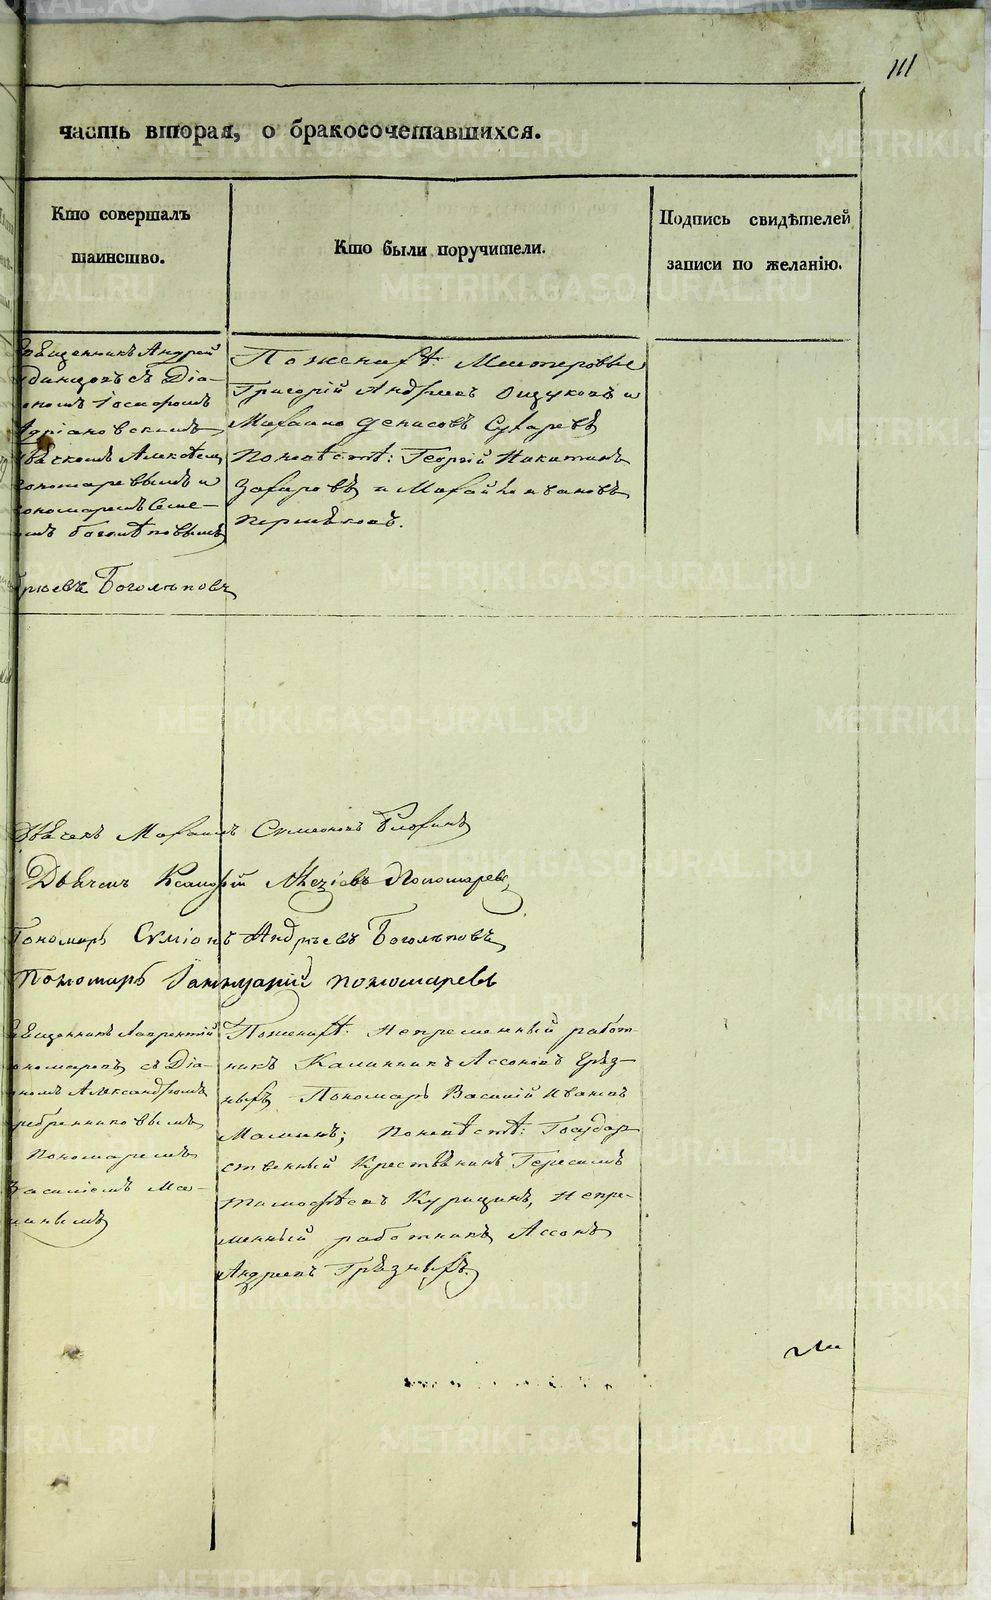 111
часть вторая, о бракосочетавшихся.
Кто совершалъ
таинство.
Кто были поручители.
Подпись свидѣтелей
записи по желанію.
священникъ Андрей
динцовъ съ Діа-
кономъ
Адріановскимъ
Алексѣем
пономаревымъ и
пономаремъ Симе-
омъ Боголѣповымъ
По женихѣ: Мастеровые
Григорій Андреевъ Ощуковъ и
Михаило Денисовъ Сухаревъ
По невѣстѣ: Георгій Никитинъ
Захаровъ и Михайло Ивановъ
Першаковъ.
дрьевъ Боголѣповъ
Дьячекъ Михаилъ Симеоновъ Блохинъ
Дьячекъ Пономаревъ
Пономарь Симіонъ Андрьевъ Боголѣповъ
Пономарь Іаннуарій Пономаревъ
священникъ Лаврентій
ономаревъ съ Діа-
ономъ Александромъ
ребренниковымъ
Пономаремъ
Василіемъ Ма-
минымъ
По женихѣ: Непременный работ-
никъ Калинникъ Ассоновъ Грѣз-
ныхъ Пономарь Василій Ивановъ
Маминъ; По невѣстѣ: Государ-
ственный Крестьянинъ Герасимъ
Тимофѣевъ Курицинъ, Непре-
менный работникъ Ассонъ
Андреевъ Грѣзныхъ.
METRIKI.GASO-URAL.RU